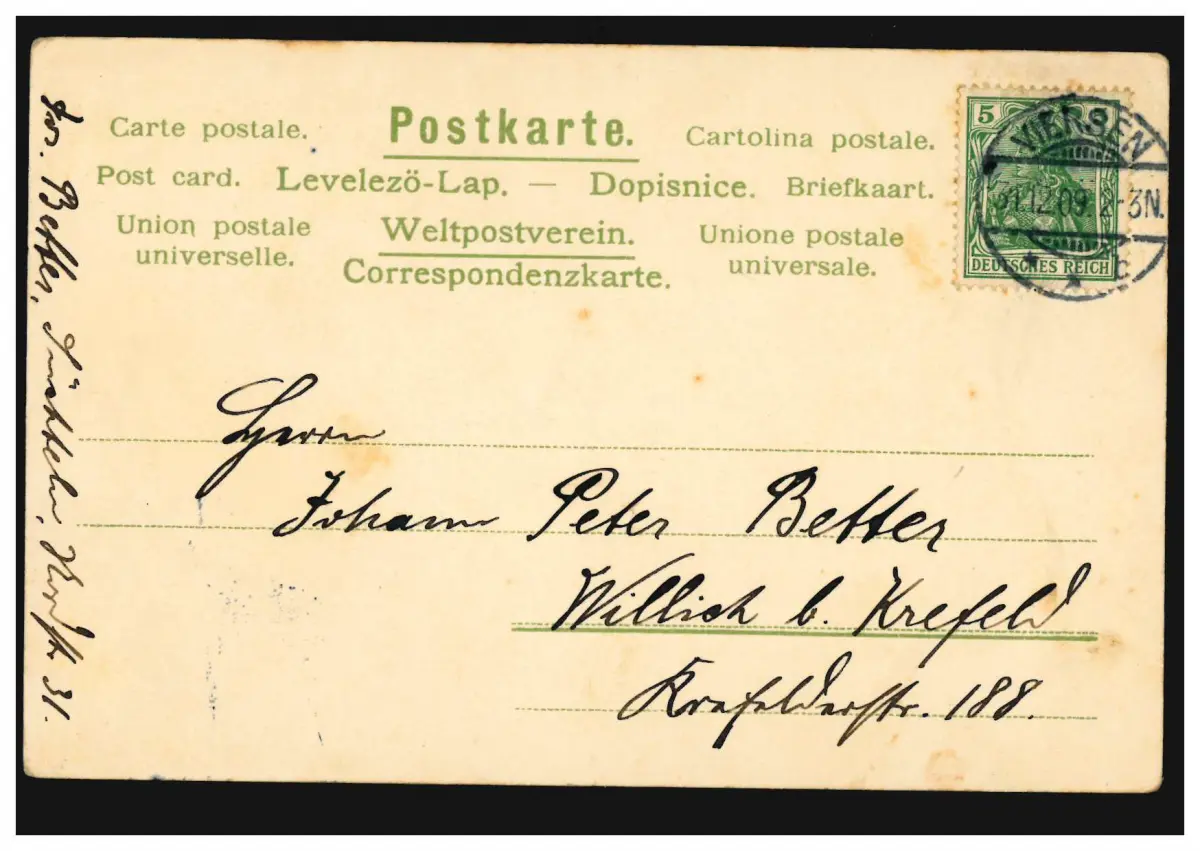 Carte postale. Postkarte. Cartolina postale.
Post card. Levelező-Lap. — Dopisnice. Briefkaart.
Union postale universelle. Weltpostverein. Unione postale universale.
Correspondenzkarte.
5
DEUTSCHES REICH
VIERSEN
31.12.09. 2-3N.
* * c
Herrn
Johann Peter Better
Willich b. Krefeld
Krefelderstr. 188.
Better, Süchteln, 31.